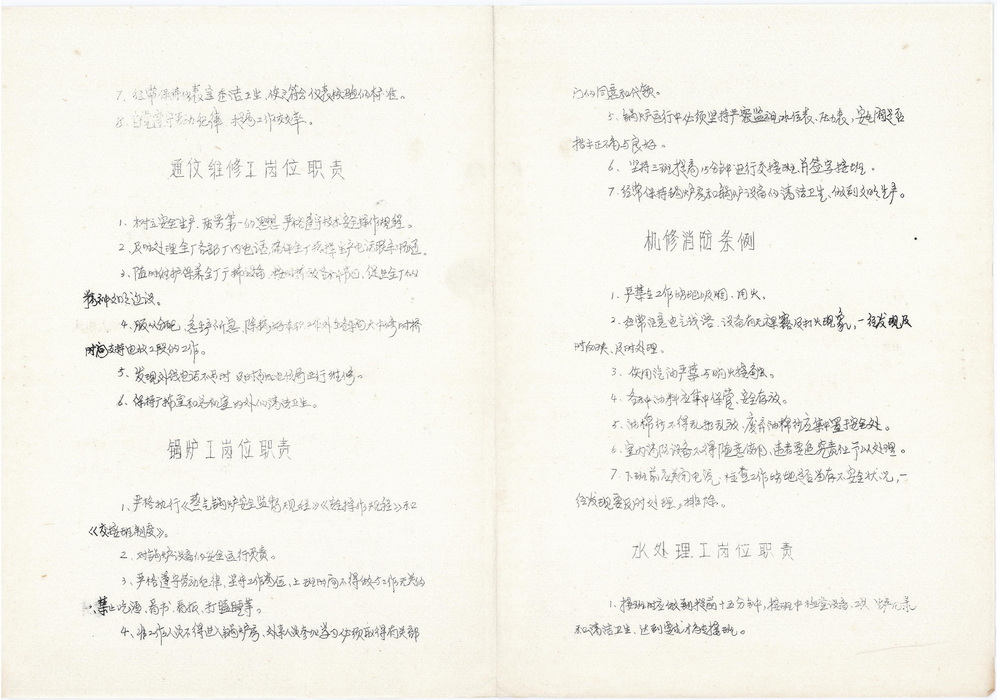 7. 经常保持仪表室整洁卫生,使之符合仪表校验的标准。
8. 自觉遵守劳动纪律 提高工作效率。
通仪维修工岗位职责
1. 树立安全生产、质量第一的思想 严格遵守技术安全操作规程。
2. 及时处理全厂各部门内电话,确保全厂指挥生产电话联系畅通。
3. 随时维护保养全厂广播设备,按时播放各种节目,促进全厂的
精神文明建设。
4. 服从分配,
时间支持电放工段的工作。
5. 发现外线电话不畅时 及时与电信局进行维修。
6. 保持广播室和总机室内外的清洁卫生。
锅炉工岗位职责
1. 严格执行《蒸汽锅炉安全监察规程》《 操作规程》和
《交接班制度》。
2. 对锅炉设备的安全运行负责。
3. 严格遵守劳动纪律,坚守工作岗位,上班时间不得做与工作无关的
禁止吃酒 看书 看报、打瞌睡等。
4. 非工作人员不得进入锅炉房,外来人员参观学习必须取得有关部
门的同意和代领。
5. 锅炉运行中必须坚持严密监视水位表、压力表,安全阀是否
指示正确与良好。
6. 坚持三班提前15分钟进行交接班,并签字接班。
7. 经常保持锅炉房和锅炉设备的清洁卫生,做到文明生产。
机修消防条例
1. 严禁在工作场地吸烟、用火。
2. 经常注意电气线路、设备有无 现象,一经发现及
时向 、及时处理。
3. 使用汽油严禁与明火接触。
4. 各种油料应集中保管、安全存放。
5. 油棉纱不得乱扔乱放,废弃油棉纱应集中置于安全处。
6. 室内消防设备不得随意借用,违者要追究责任予以处理。
7. 下班前应关闭电源,检查工作场地是否存在不安全状况,一
经发现要及时处理,排除。
水处理工岗位职责
1. 接班时应做到提前十五分钟,接班中检查设备、 记录
和清洁卫生,达到要求才能接班。